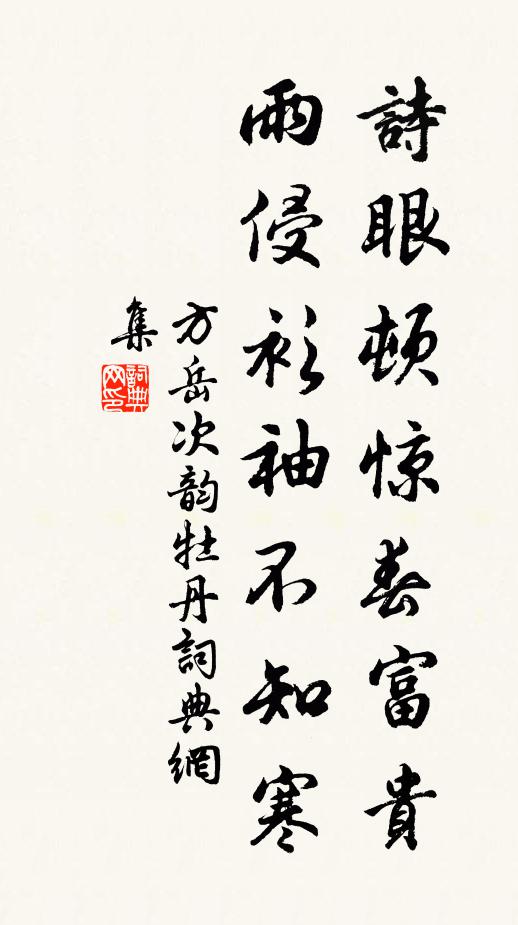 詩眼頓惊春富貴
雨侵衫袖不知寒
方岳次韵牡丹詞典網
集
詞典
网印